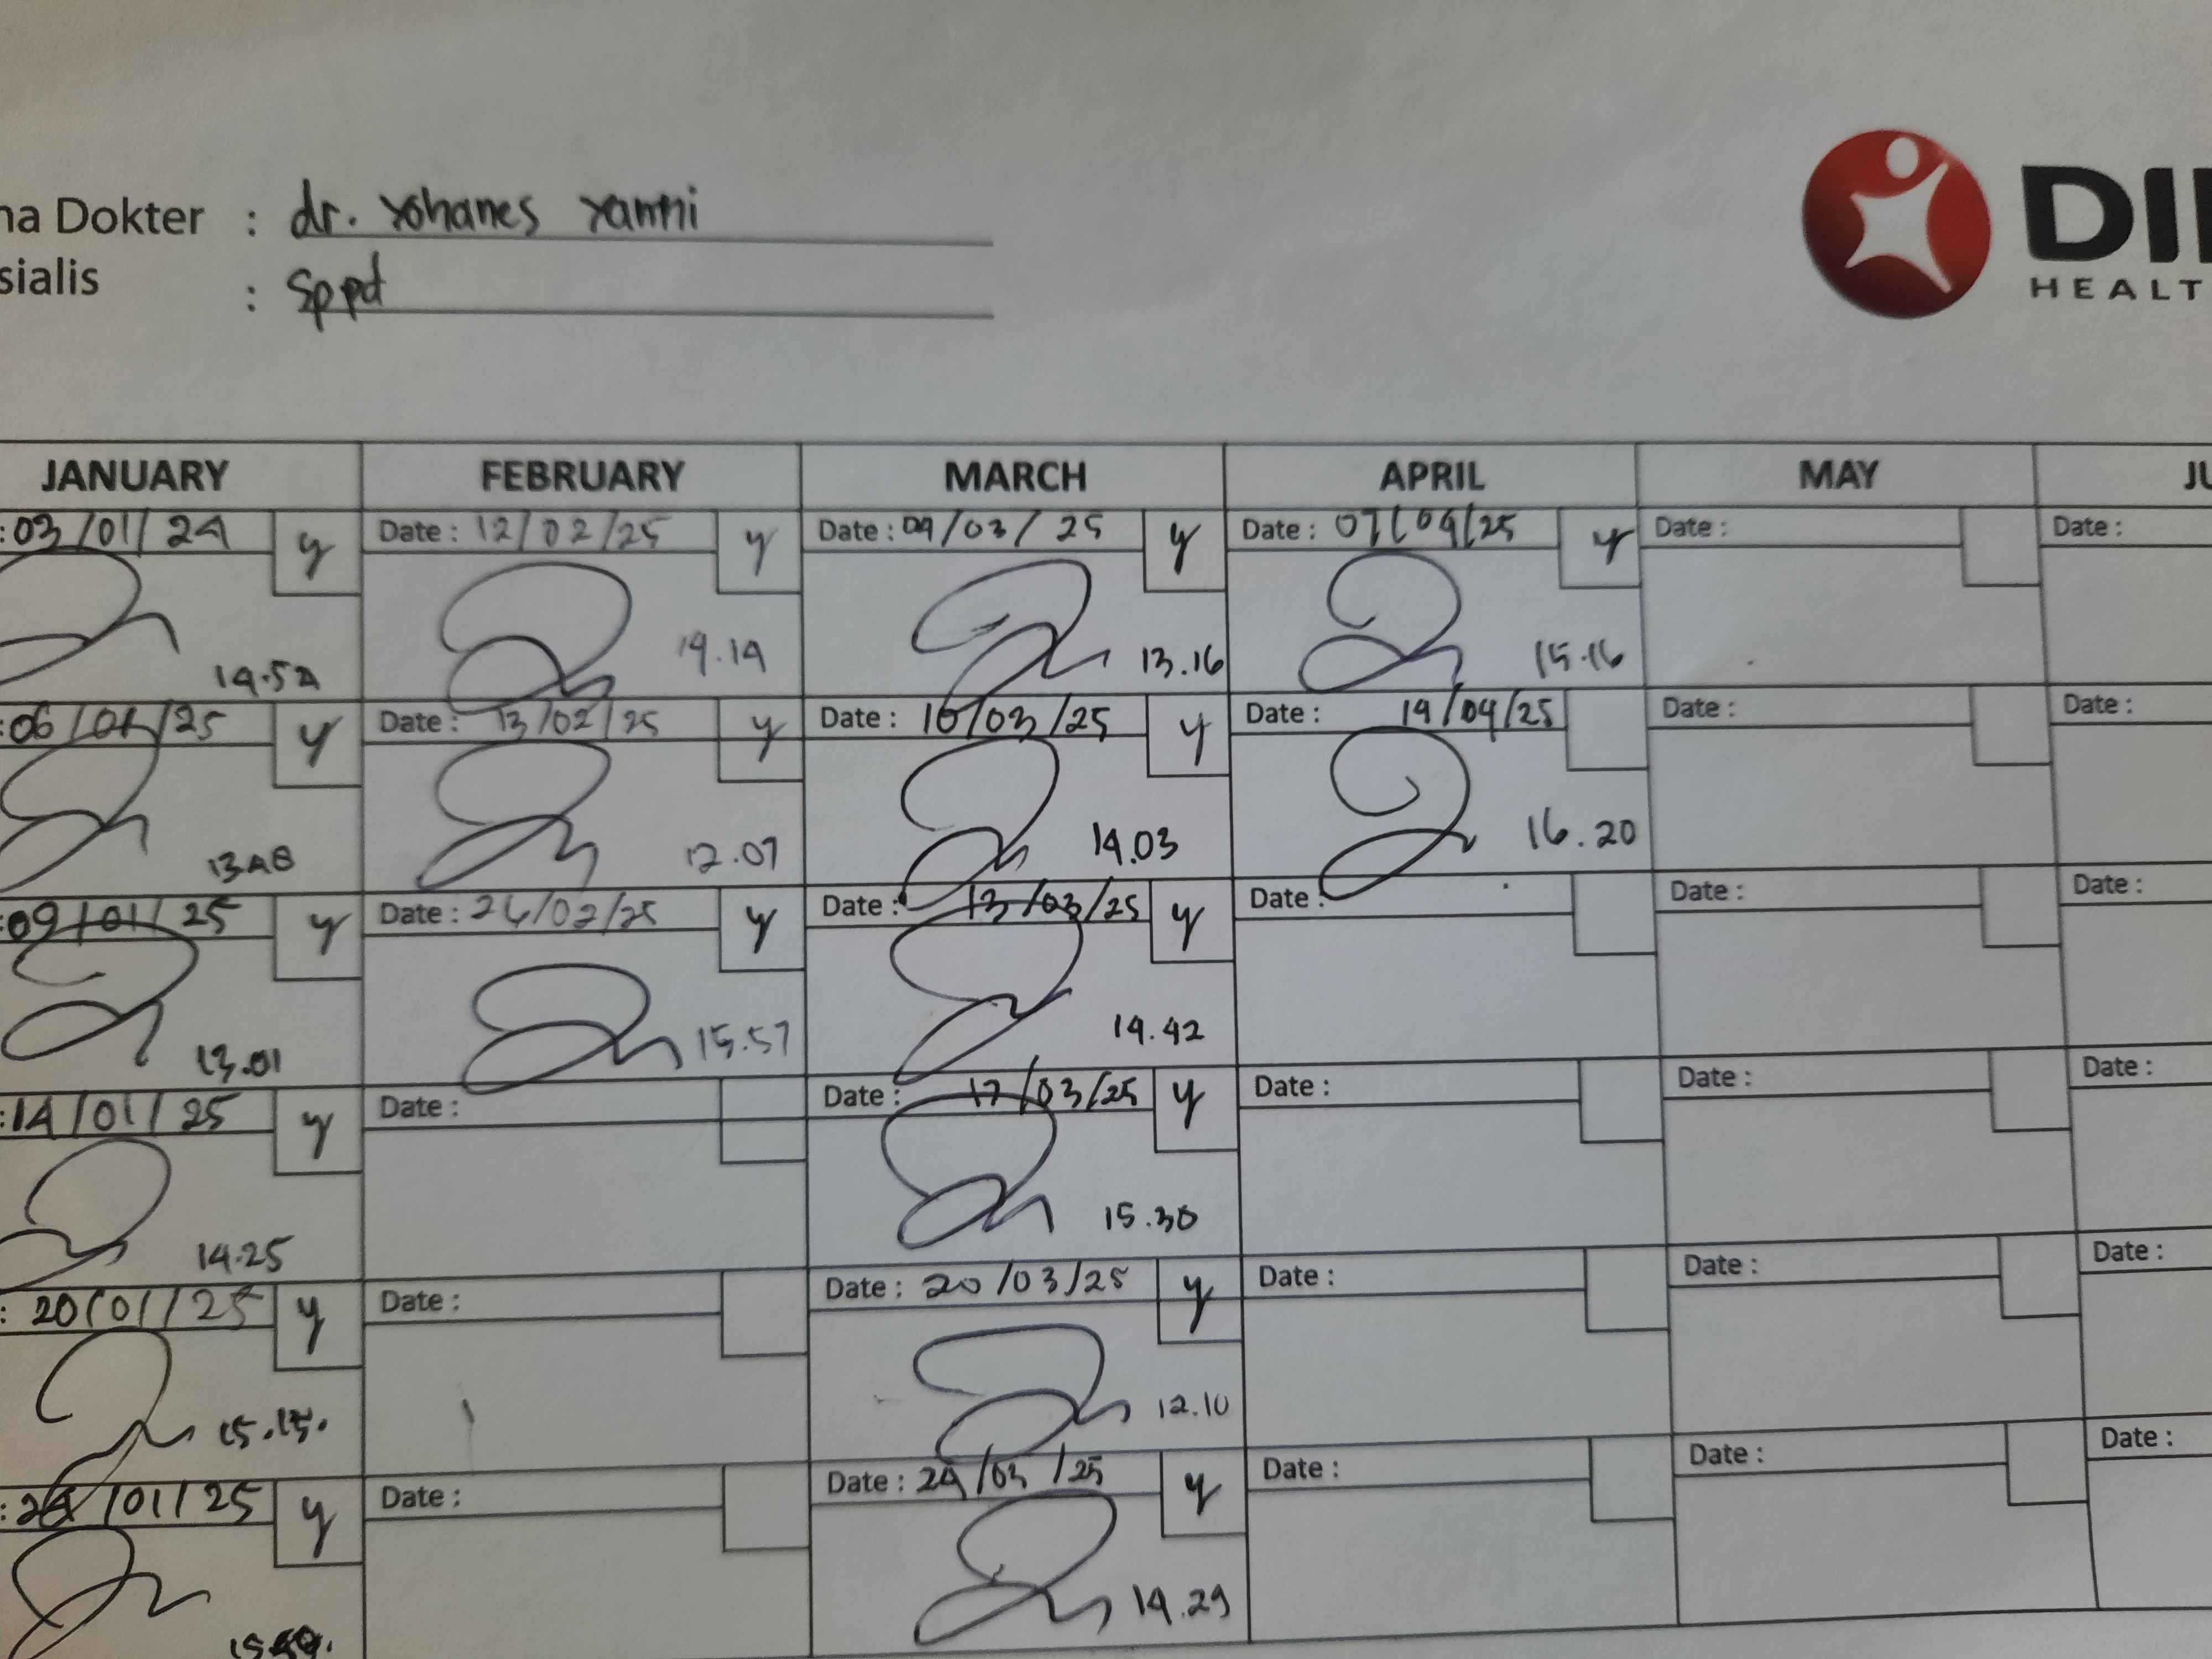 na Dokter : dr. Yohanes Yanni
sialis : Sppd
DI
HEALT
JANUARY FEBRUARY MARCH APRIL MAY JU
: 03/01/24 y Date : 12/02/25 y Date : 04/03/25 y Date : 07/04/25 y Date : Date :
14.52 14.14 13.16 15.16
: 06/01/25 y Date : 13/02/25 y Date : 10/03/25 y Date : 14/04/25 Date : Date :
13.48 12.07 14.03 16.20
: 09/01/25 y Date : 24/02/25 y Date : 13/03/25 y Date : Date : Date :
13.01 15.57 14.42
: 14/01/25 y Date : Date : 17/03/25 y Date : Date : Date :
14.25 15.30
: 20/01/25 y Date : Date : 20/03/25 y Date : Date : Date :
15.15. 12.10
: 24/01/25 y Date : Date : 24/03/25 y Date : Date : Date :
14.29